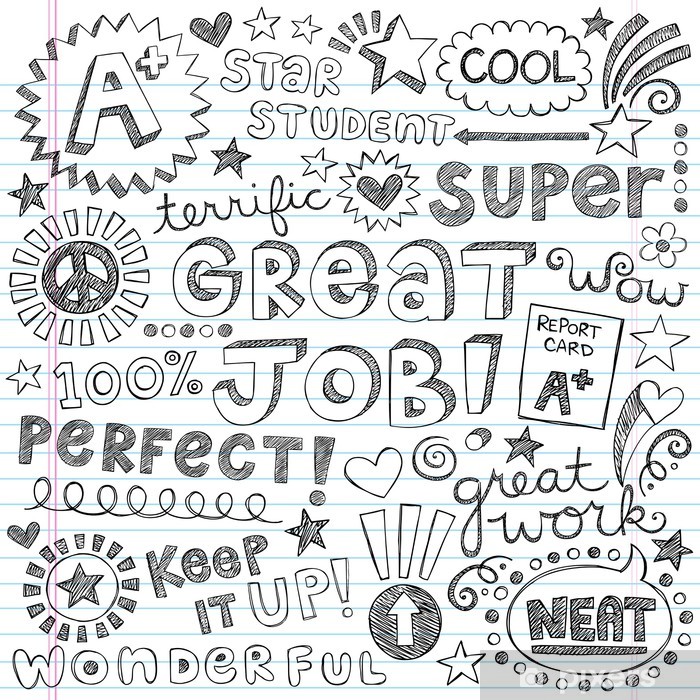 A+
STAR
STUDENT
COOL
terrific
SUPER
GREAT
WOW
JOB!
REPORT
CARD
A+
100%
PERFECT!
great
work
KEEP
IT UP!
NEAT
WONDERFUL
pixers